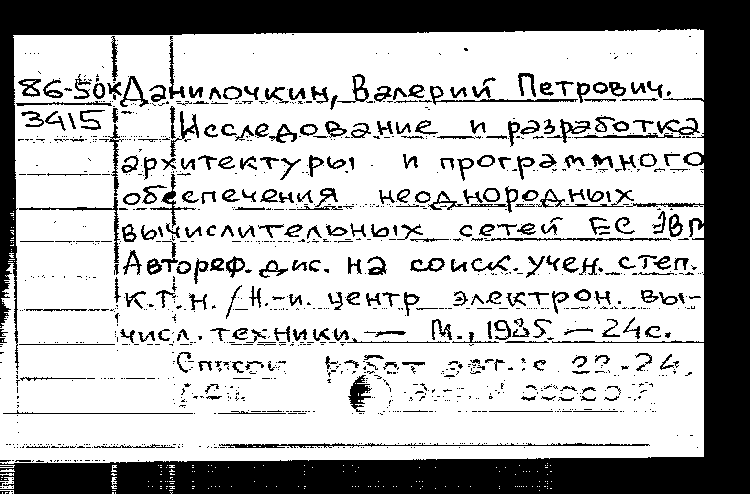 86-50к Данилочкин, Валерий Петрович.
3415 Исследование и разработка
архитектуры и программного
обеспечения неоднородных
вычислительных сетей ЕС ЭВМ
Автореф. дис. на соиск. учен. степ.
к.т.н. / Н.-и. центр электрон. вы-
числ. техники. — М., 1985. — 24с.
Список работ авт.: с. 22-24.